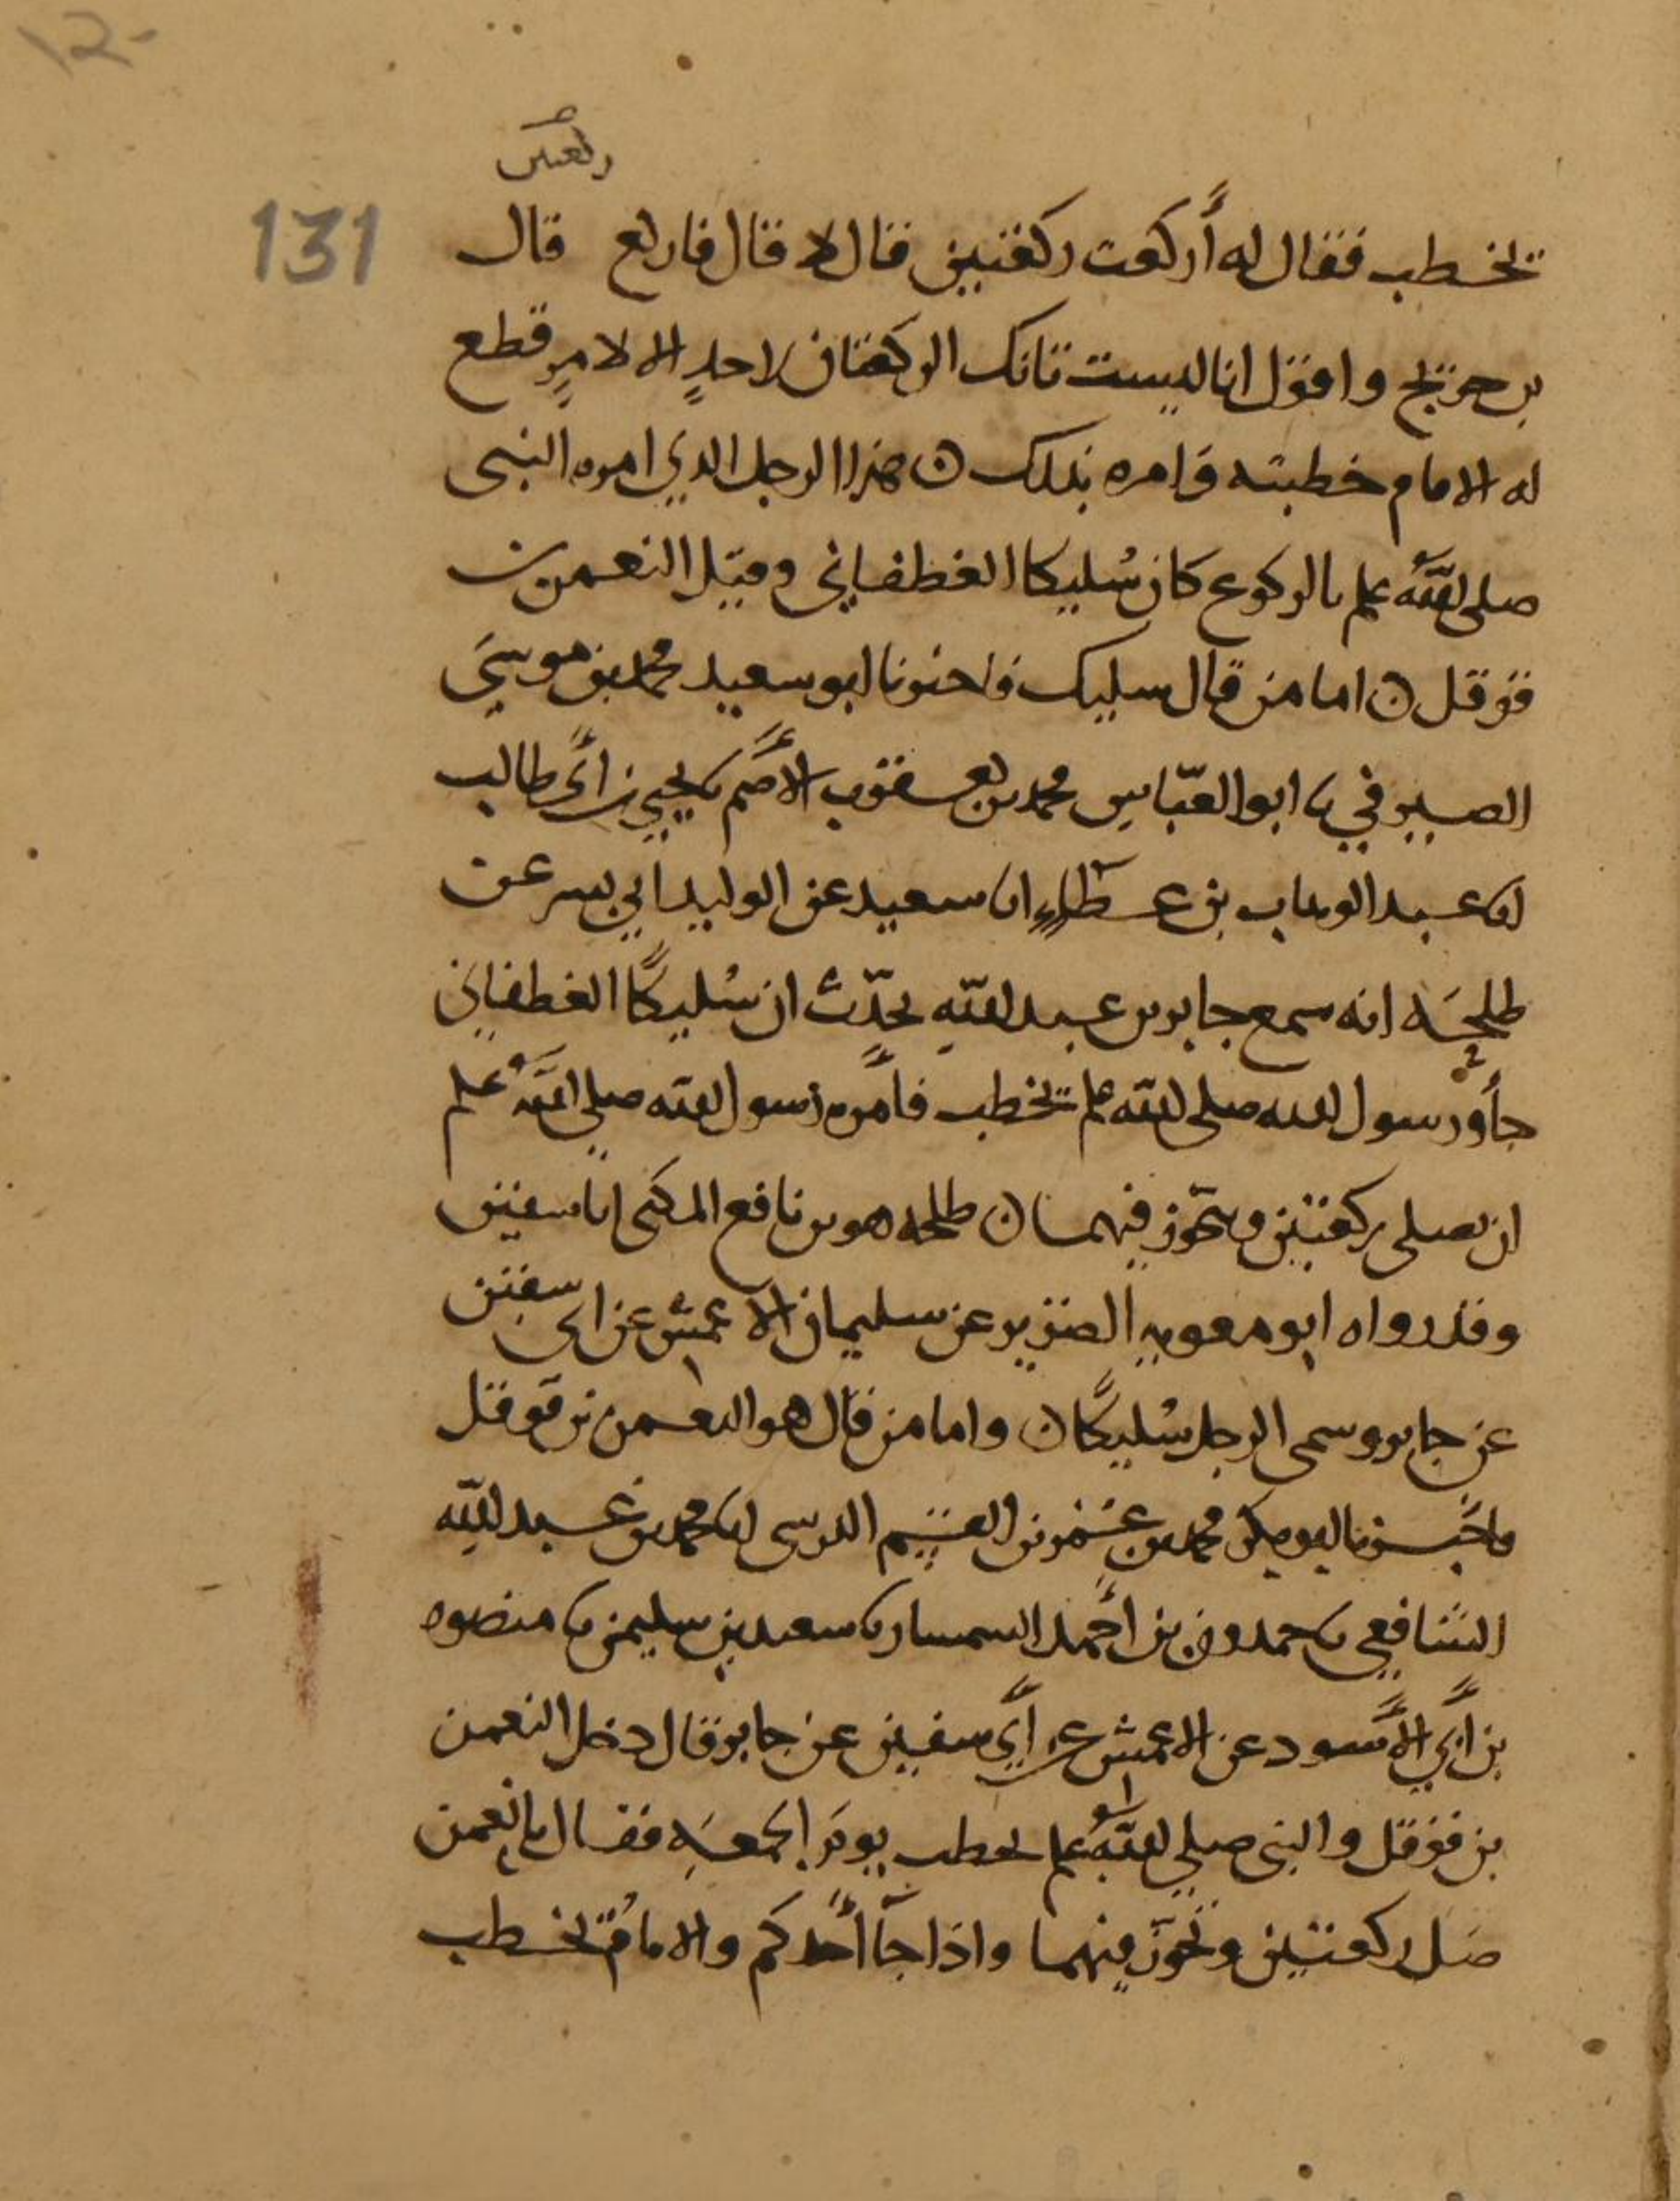 ١٢٠
ركعتين
131
يخطب فقال له أركعت ركعتين قال لا قال فاركع قال
بن جريج واقول انا ليست تانك الركعتان لاحدٍ الا لامرٍ قطع
له الامام خطبته وامره بذلك ن هذا الرجل الذي امره النبى
صلى الله علم بالركوع كان سُليكا الغطفاني وقيل النعمن بن
قوقل ن اما من قال سليك فاخبرنا ابو سعيد محمد بن موسى
الصيرفي نا ابو العبّاس محمد بن يعقوب الأصم نا يحيى بن أبى طالب
انا عبد الوهاب بن عطاء انا سعيد عن الوليد ابي بسر عن
طلحة انه سمع جابر بن عبد الله يحدّث ان سُليكًا الغطفاني
جأ ورسول الله صلى الله علم يخطب فأمره رسول الله صلى الله علم
ان يصلى ركعتين ويتجوز فيهما ن طلحه هو بن نافع المكنى ابا سفين
وقد رواه ابو معويه الضرير عن سليمان الاعمش عن ابى سفين
عن جابر وسمى الرجل سُليكًا ن واما من قال هو النعمن بن قوقل
فاخبرنا ابو بكر محمد بن عمر بن القسم النرسى انا محمد بن عبد الله
الشافعي نا حمدون بن أحمد السمسار نا سعيد بن سليمن نا منصور
بن أبي الأسود عن الاعمش عن أبي سفين عن جابر قال دخل النعمن
بن قوقل والنبى صلى الله علم يخطب يوم الجمعه فقال يا نعمن
صل ركعتين وتجوّز فيهما واذا جآ أحدكم والامامُ يخطب